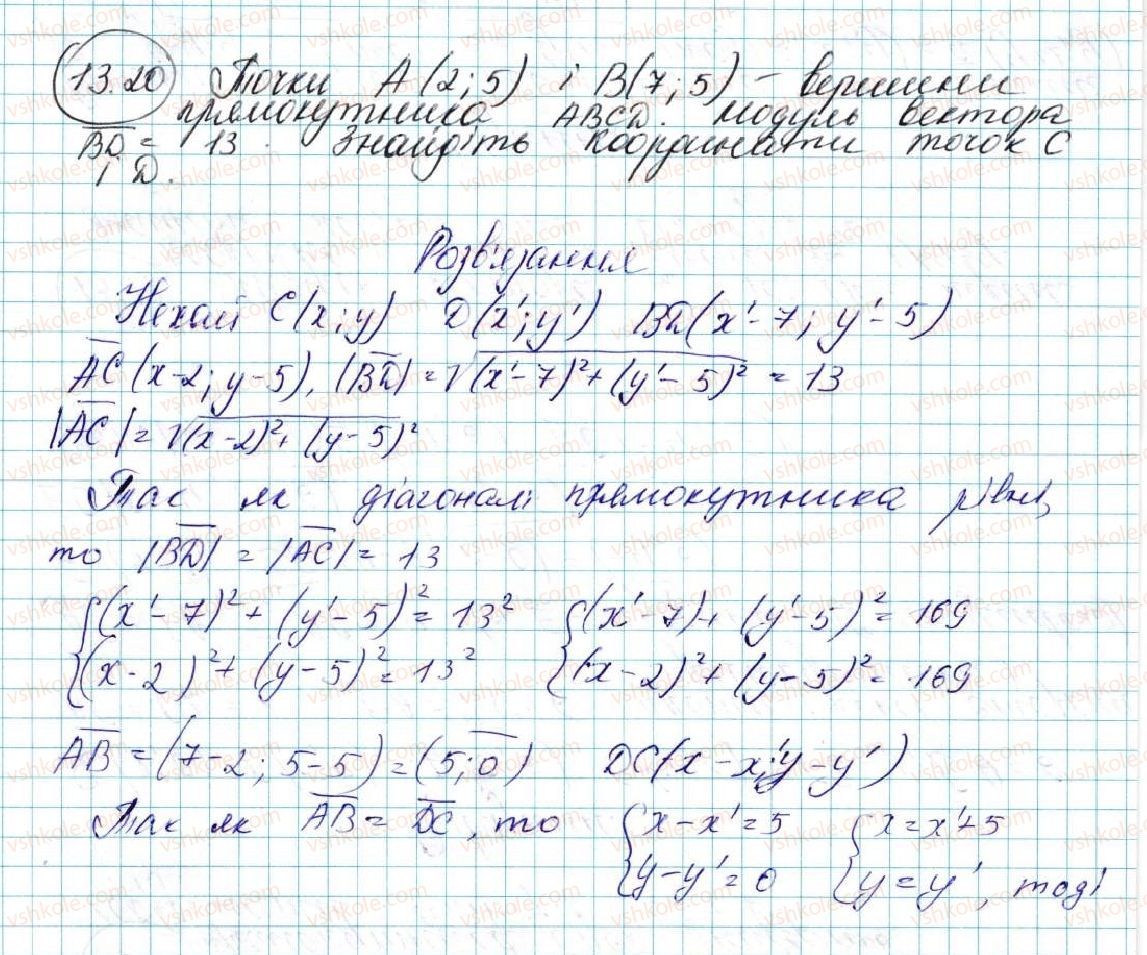 13.20 Точки A(2; 5) і B(7; 5) – вершини
прямокутника ABCD. Модуль вектора
BD = 13. Знайдіть координати точок C
і D.
Розв'язання
Нехай C(x; y) D(x'; y') BD(x'-7; y'-5)
AC(x-2; y-5), |BD| = √(x'-7)²+(y'-5)² = 13
|AC| = √(x-2)²+(y-5)²
Так як діагоналі прямокутника рівні,
то |BD| = |AC| = 13
{(x'-7)²+(y'-5)²=13² {(x'-7)+(y'-5)²=169
{(x-2)²+(y-5)²=13² {(x-2)²+(y-5)²=169
AB = (7-2; 5-5) = (5; 0) DC(x-x'; y-y')
Так як AB = DC, то {x-x'=5 {x=x'+5
{y-y'=0 {y=y', тоді
vshkole.com